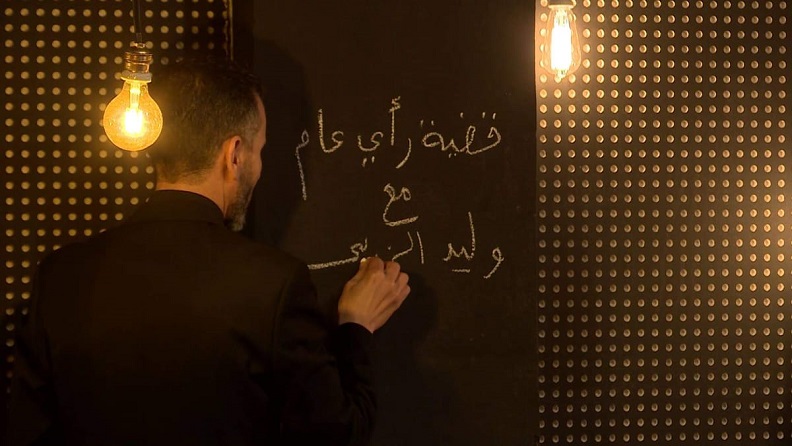 قضية رأي عام
مع
وليد